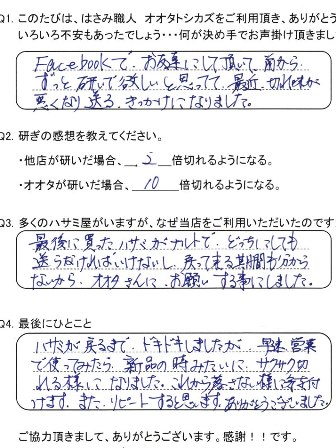 Q1. このたびは、はさみ職人 オオタトシカズをご利用頂き、ありがとう
いろいろ不安もあったでしょう・・・何が決め手でお声掛け頂きまし
Facebookで お友達にして頂いて 前から
ずっと研いで欲しいと思ってて 最近 切れ味が
悪くなり送る きっかけになりました。
Q2. 研ぎの感想を教えてください。
・他店が研いだ場合、 5 倍切れるようになる。
・オオタが研いだ場合、 10 倍切れるようになる。
Q3. 多くのハサミ屋がいますが、なぜ当店をご利用いただいたのです
最後に買ったハサミがナルトで どっちにしても
送らなければいけないし 戻って来る期間も分から
ないから オオタさんに お願いする事にしました。
Q4. 最後にひとこと
ハサミが戻るまで ドキドキしましたが 早速 営業
で使ってみたら 新品の時みたいに サクサク切
れる様になりました。これから落さない様に気を付
けます。また リピートすると思います。ありがとうございました。
ご協力頂きまして、ありがとうございます。感謝！！です。